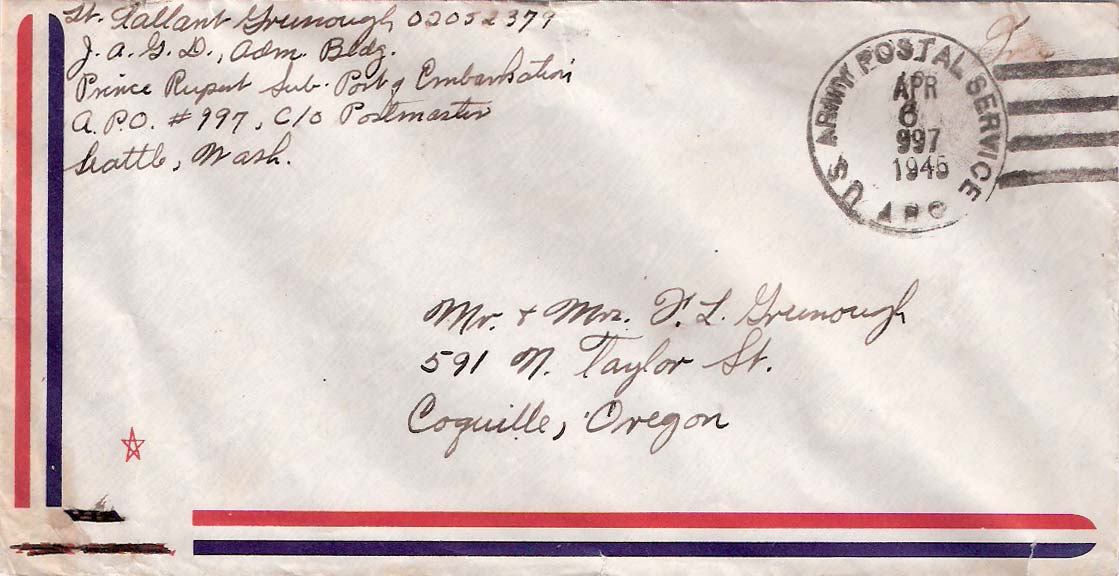 Lt. Tallant Greenough 02052379
J.A.G.D., Adm. Bldg.
Prince Rupert Sub-Port of Embarkation
A.P.O. #997, C/O Postmaster
Seattle, Wash.
U.S. ARMY POSTAL SERVICE
APR
6
997
1945
APO
Mr. + Mrs. F. L. Greenough
591 N. Taylor St.
Coquille, Oregon